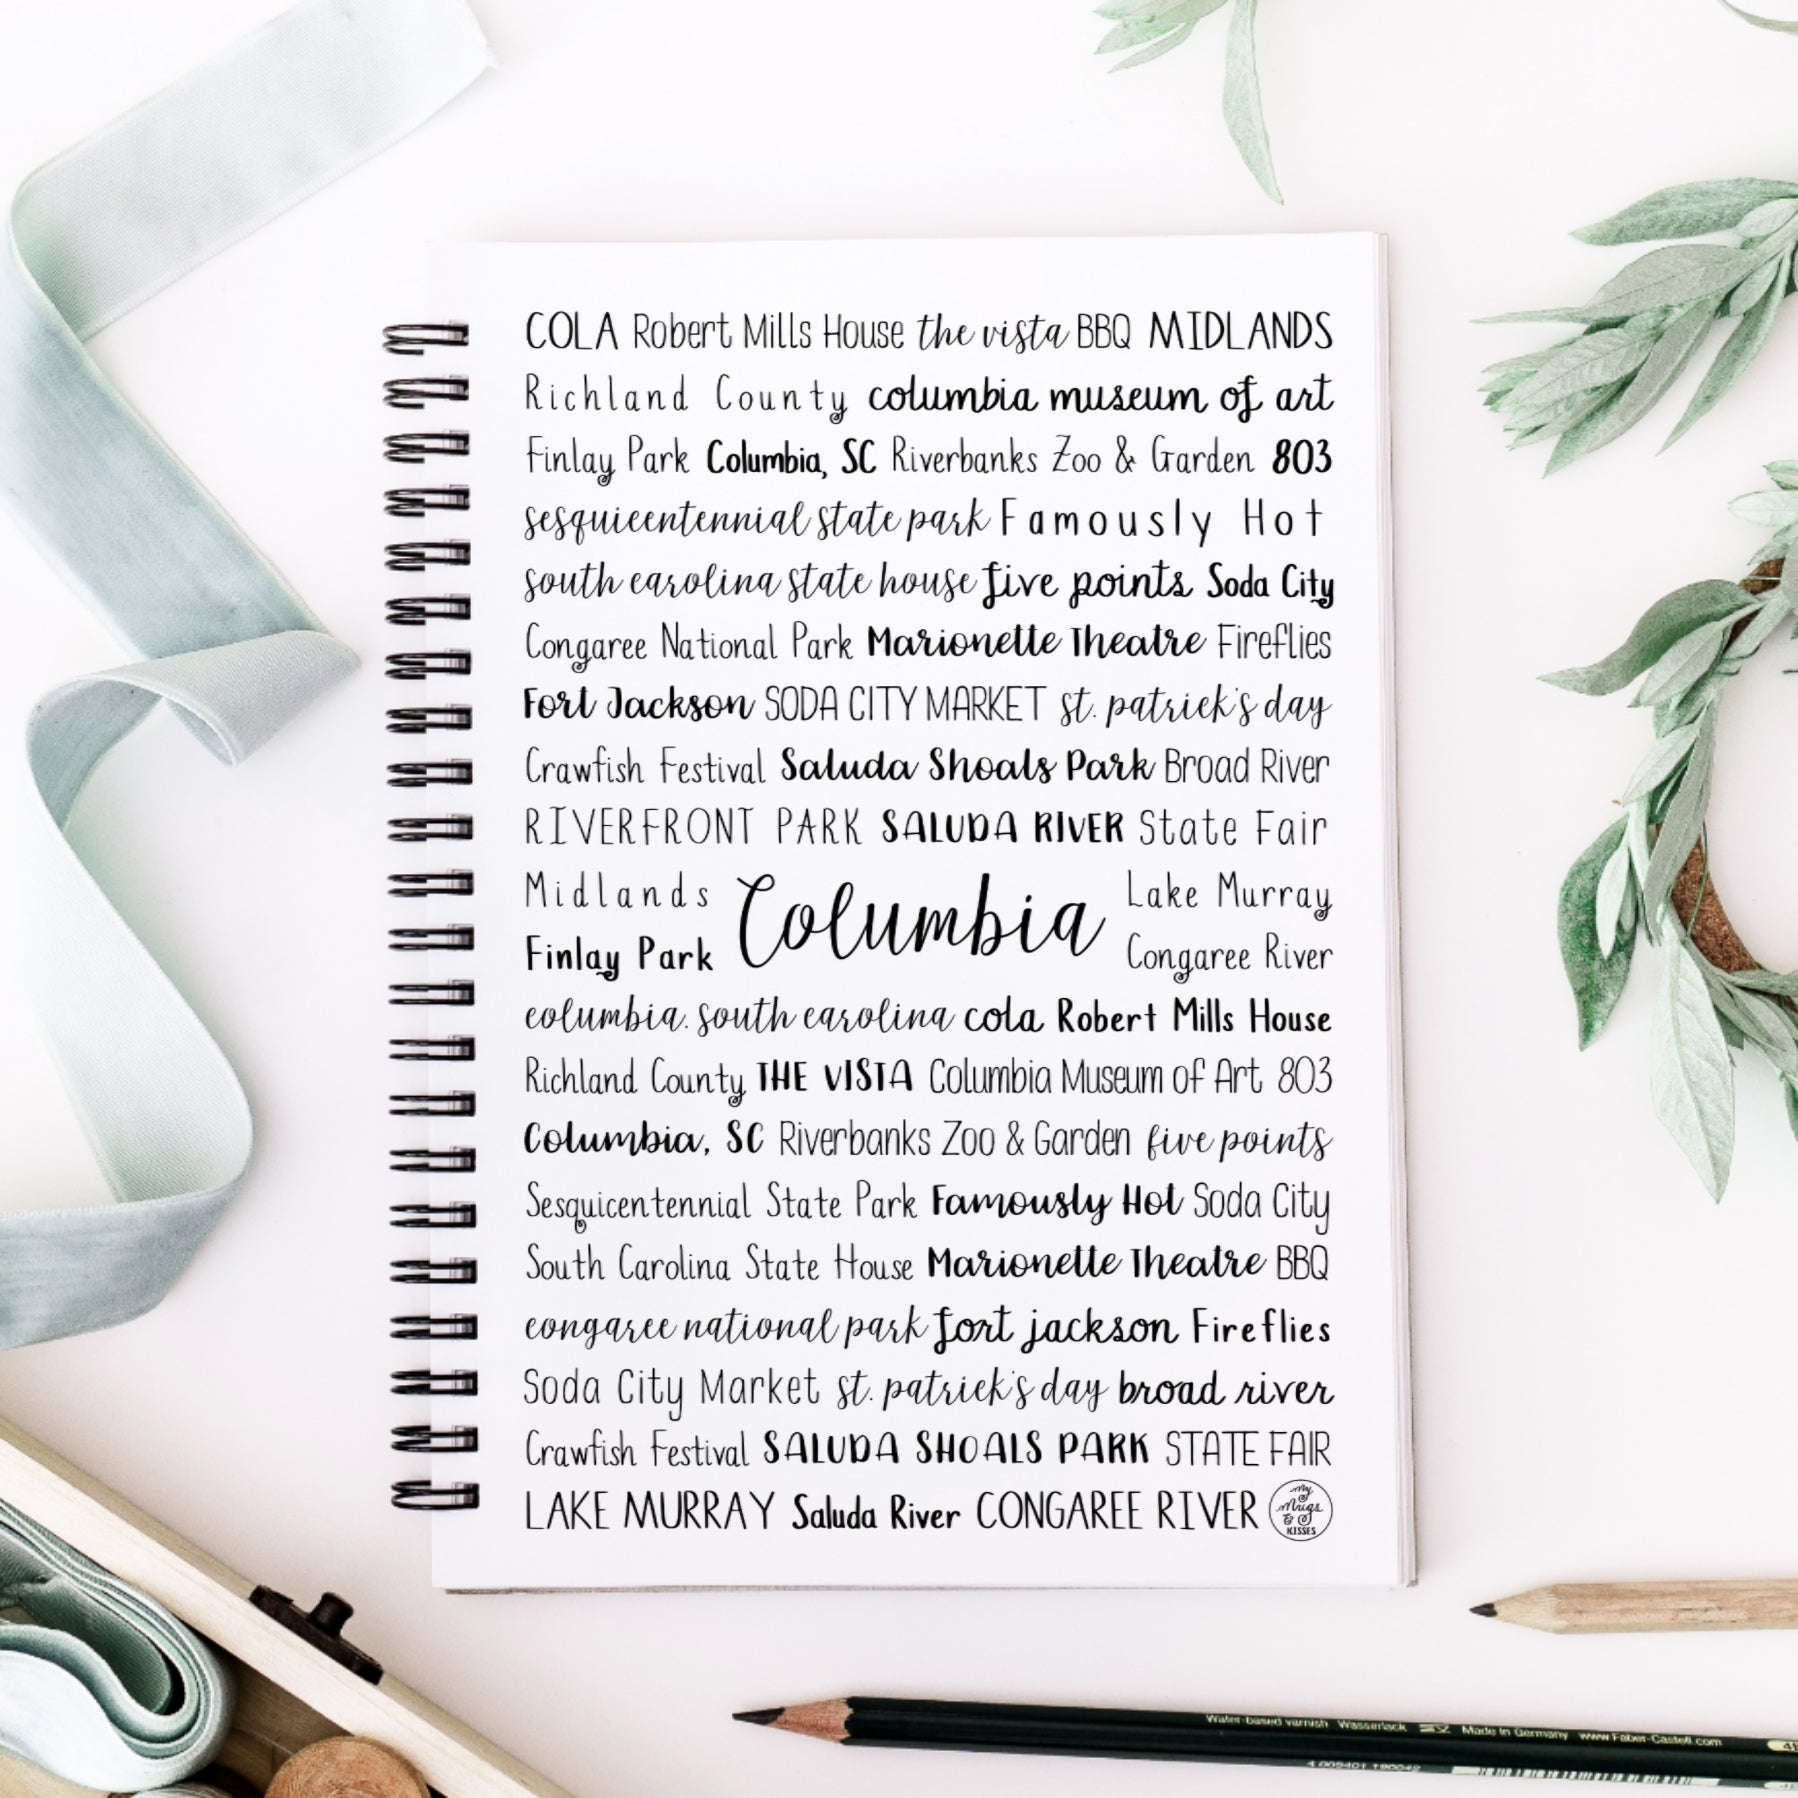 COLA Robert Mills House the vista BBQ MIDLANDS
Richland County columbia museum of art
Finlay Park Columbia, SC Riverbanks Zoo & Garden 803
sesquicentennial state park Famously Hot
south carolina state house five points Soda City
Congaree National Park Marionette Theatre Fireflies
Fort Jackson SODA CITY MARKET st. patrick's day
Crawfish Festival Saluda Shoals Park Broad River
RIVERFRONT PARK SALUDA RIVER State Fair
Midlands
Finlay Park
Columbia
Lake Murray
Congaree River
columbia. south carolina cola Robert Mills House
Richland County THE VISTA Columbia Museum of Art 803
Columbia, SC Riverbanks Zoo & Garden five points
Sesquicentennial State Park Famously Hot Soda City
South Carolina State House Marionette Theatre BBQ
congaree national park fort jackson Fireflies
Soda City Market st. patrick's day broad river
Crawfish Festival SALUDA SHOALS PARK STATE FAIR
LAKE MURRAY Saluda River CONGAREE RIVER
my
Mugs
&
KISSES
Water-based varnish Wasserlack Made in Germany www.Faber-Castell.com